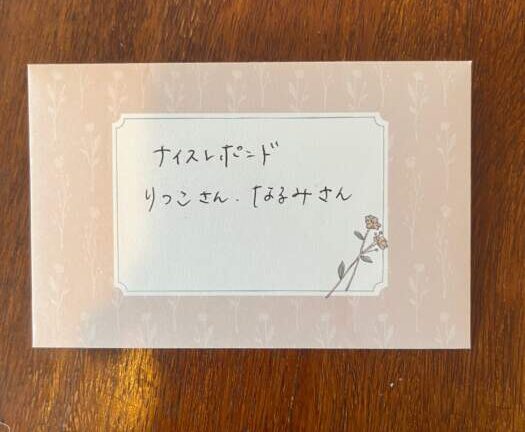 ナイスレポンド
りつこさん、なるみさん